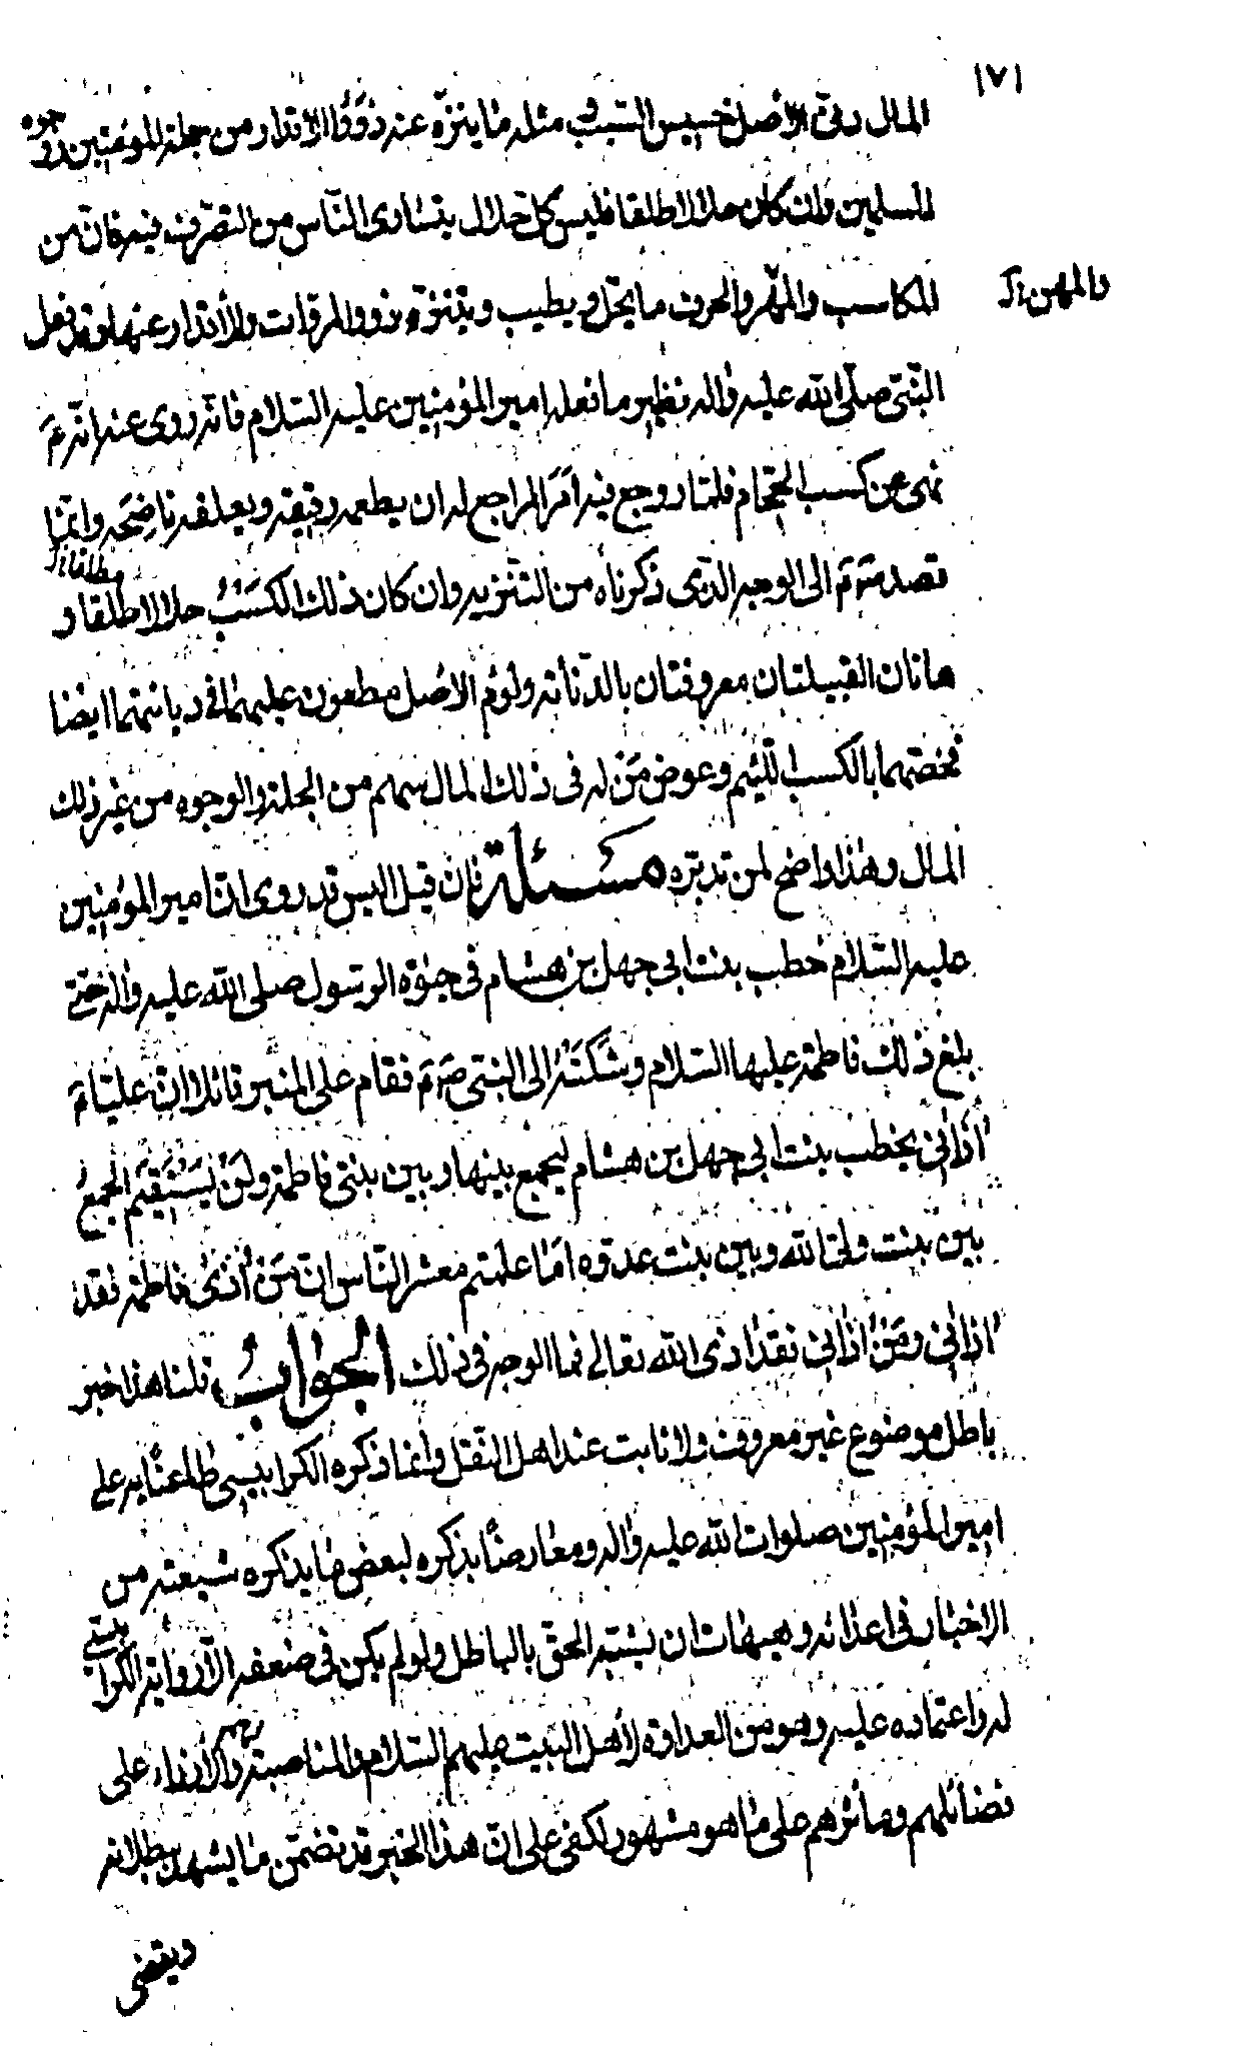 ١٧١
المال دنىّ الأصل خسيس السبب و مثله ما يتنزّه عنه ذَوُوا الأقدار من جملة المؤمنين و وجوه
المسلمين وان كان حلالا طلقا فليس كلّ حلال يتساوى النّاس من التصرّف فيه فانّ من
المكاسب والمهر والحرف ما يحلّ و يطيب ويتنزّه ذووا المروّات والأقدار عنها وقد فعل
والمهن
النّبىّ صلّى الله عليه وآله نظير ما فعله امير المؤمنين عليه السّلام فانّه روى عنه انّه ع
نهى عن كسب الحجّام فلمّا روجع فيه امَرَ المراجع له ان يطعمه رقيقه ويعلفه ناضِحَه وانّما
قصد ع الى الوجه الّذى ذكرناه من التّنزيه وان كان ذلك الكسبُ حلالا طلقا و
مطلقا
هاتان القبيلتان معروفتان بالدّنائة ولؤم الأصل مطعون عليهما فى ديانتهما ايضا
فخصّهما بالكسب اللّئيم وعوض مَنْ له فى ذلك المال سهم من الجلة والوجوه من غير ذلك
المال وهذا واضح لمن تدبّره مسئلة فان قيل اليس قد روى انّ امير المؤمنين
عليه السّلام خطب بنت ابى جهل بن هشام فى حيوة الرسول صلى الله عليه وآله حتّى
بلغ ذلك فاطمة عليها السّلام وشَكَتْهُ الى النبىّ ص فقام على المنبر قائلا انّ عليّا ع
آذانى يخطب بنت ابى جهل بن هشام ليجمع بينها وبين بنتى فاطمة ولَنْ يَسْتَقيمَ الجمعُ
بين بنت ولىّ الله وبين بنت عدوّه امَا علمتم معشر النّاس انّ مَنْ آذىٰ فاطمة فقد
آذانى ومَنْ آذانى فقد اذى الله تعالى فما الوجه فى ذلك الجواب قلنا هذا خبر
باطل موضوع غير معروف ولا ثابت عند اهل النّقل وانما ذكره الكرابيسى طاعنًا به على
امير المؤمنين صلوات الله عليه وآله ومعارضًا بذكره لبعض ما يذكره شيعته من
الاخبار فى اعدائه وهيهات ان يشتبه الحقّ بالباطل ولو لم يكن فى ضعفه الّا رواية الكرابيسى
له واعتماده عليه وهو من العداوة لأهل البيت عليهم السّلام والمناصبة لهم والازراء على
فضائلهم ومآثرهم على ما هو مشهور لكفى على انّ هذا الخبر قد تضمّن ما يشهد ببطلانه
ويقضى